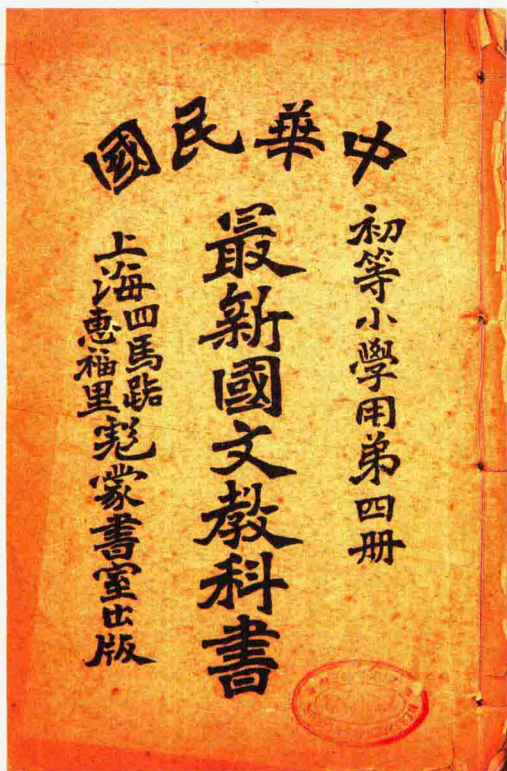 中華民國
初等小學用弟四册
最新國文教科書
上海四馬路惠福里彪蒙書室出版